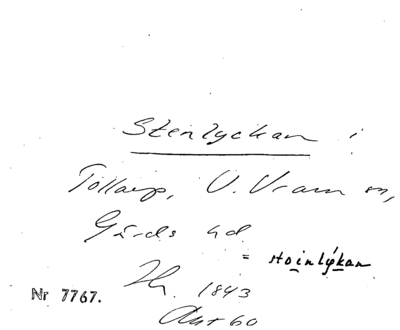 Stenlyckan i
Tollarp, V. Vram sn,
Gärds hd.
= stoinlýkan
Hr. 1843
Nr 7767.
Ant 60